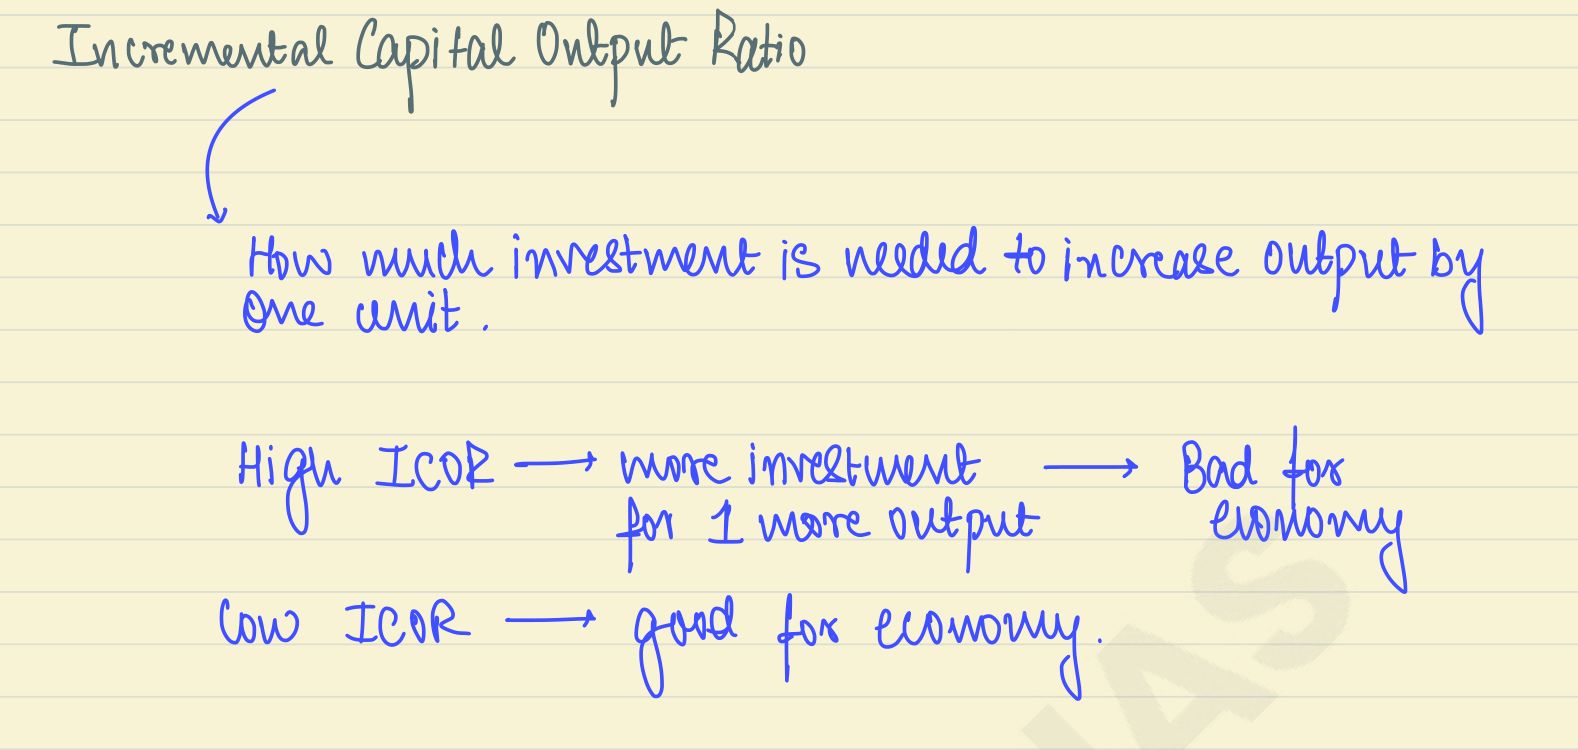 Incremental Capital Output Ratio
How much investment is needed to increase output by
one unit.
High ICOR → more investment → Bad for
for 1 more output economy
Low ICOR → good for economy.
IAS